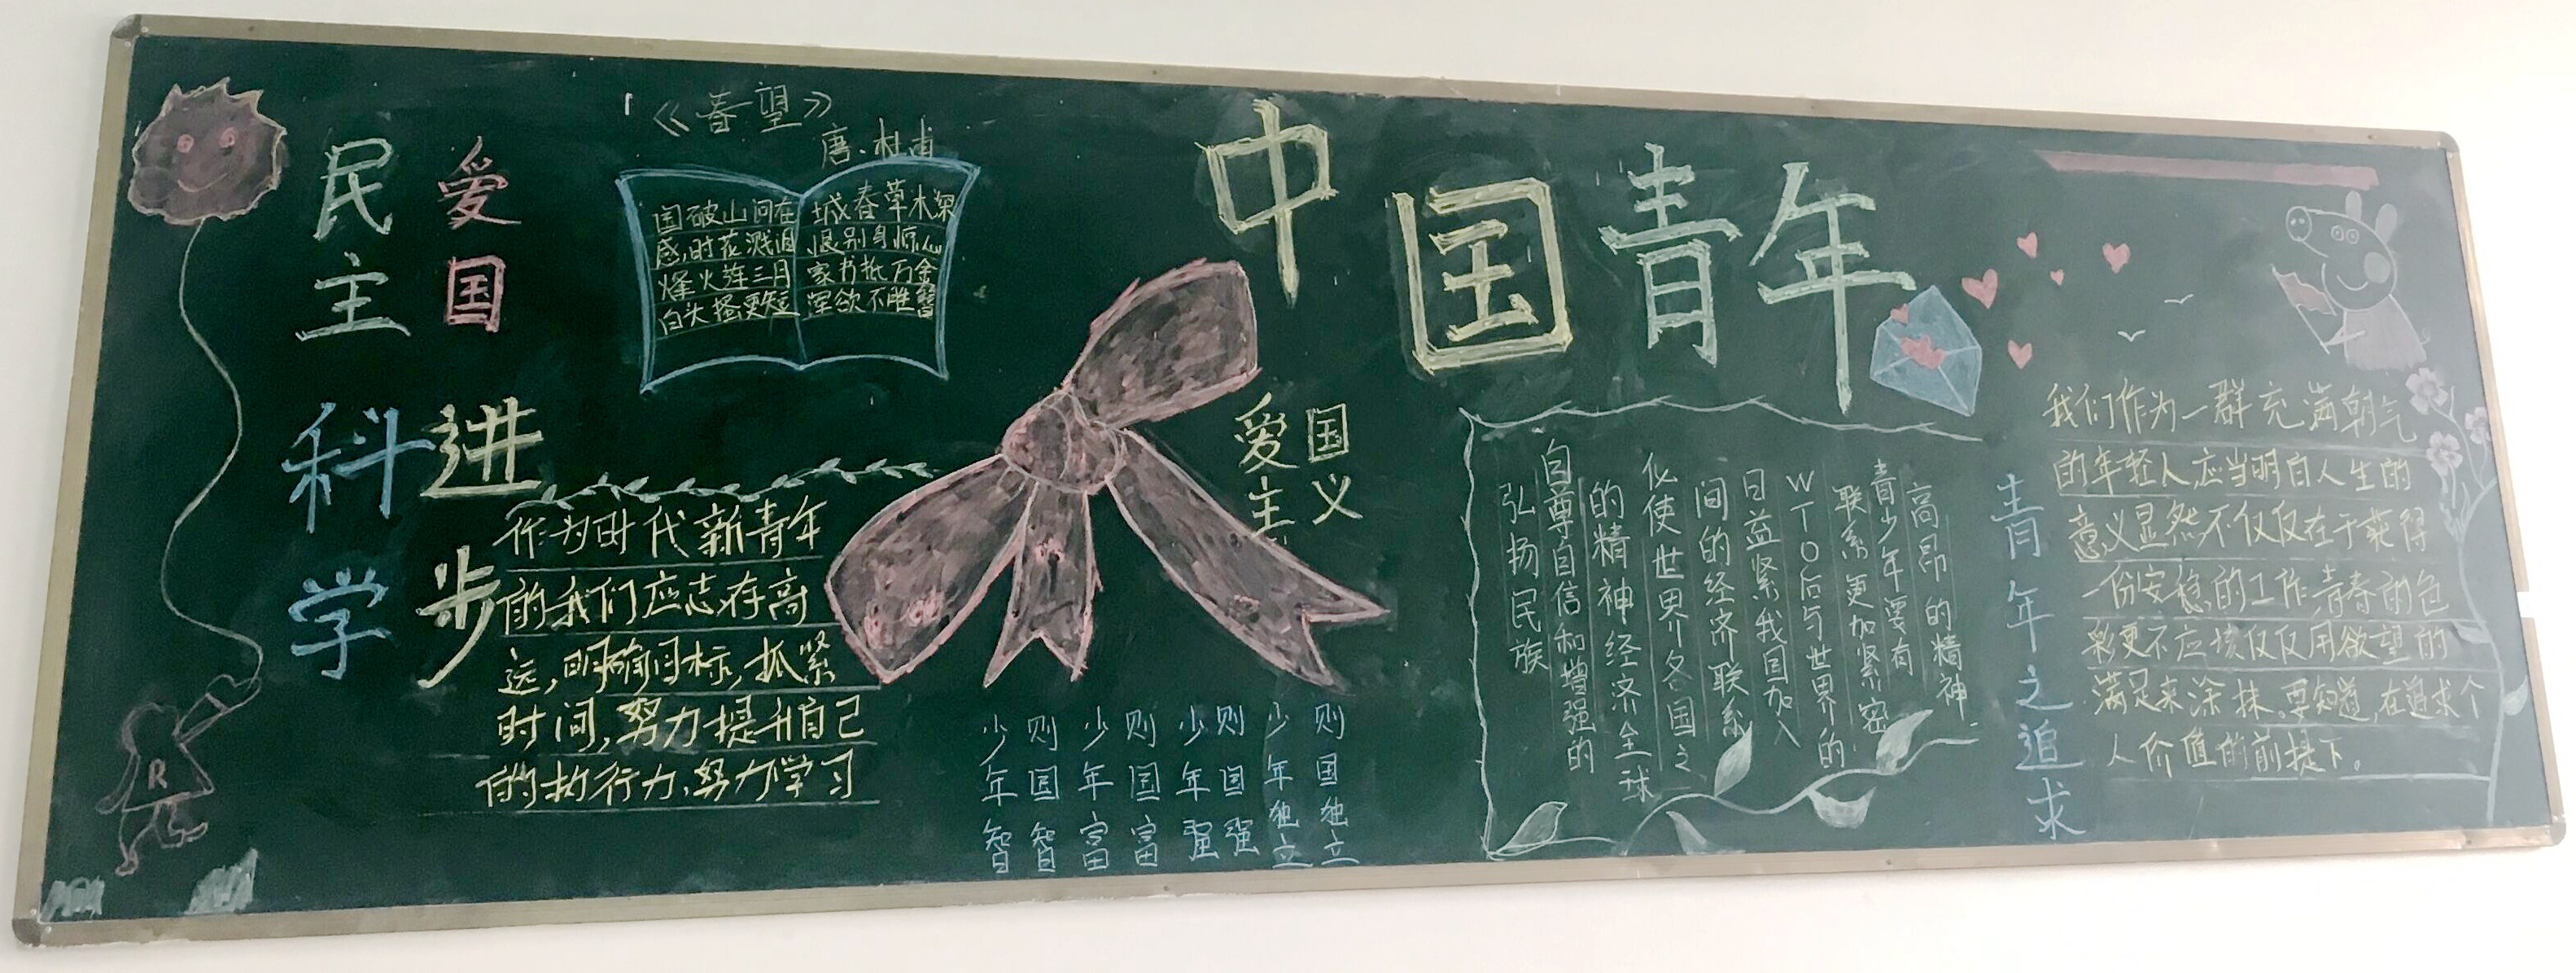 民主
爱国
科学
进步
《春望》
唐·杜甫
国破山河在 城春草木深
感时花溅泪 恨别鸟惊心
烽火连三月 家书抵万金
白头搔更短 浑欲不胜簪
中国青年
作为时代新青年
的我们应志存高
远,明确目标,抓紧
时间,努力提升自己
的执行力,努力学习
爱国
主义
少年智
则国智
少年富
则国富
少年强
则国强
少年独立
则国独立
高昂的精神
青少年要有
联系更加紧密
WTO后与世界的
日益紧我国加入
间的经济联系
似使世界各国之
的精神经济全球
自尊自信和增强的
弘扬民族
青年之追求
我们作为一群充满朝气
的年轻人,应当明白人生的
意义显然不仅仅在于获得
一份安稳的工作,青春的色
彩更不应该仅仅用欲望的
满足来涂抹。要知道,在追求个
人价值的前提下。
R